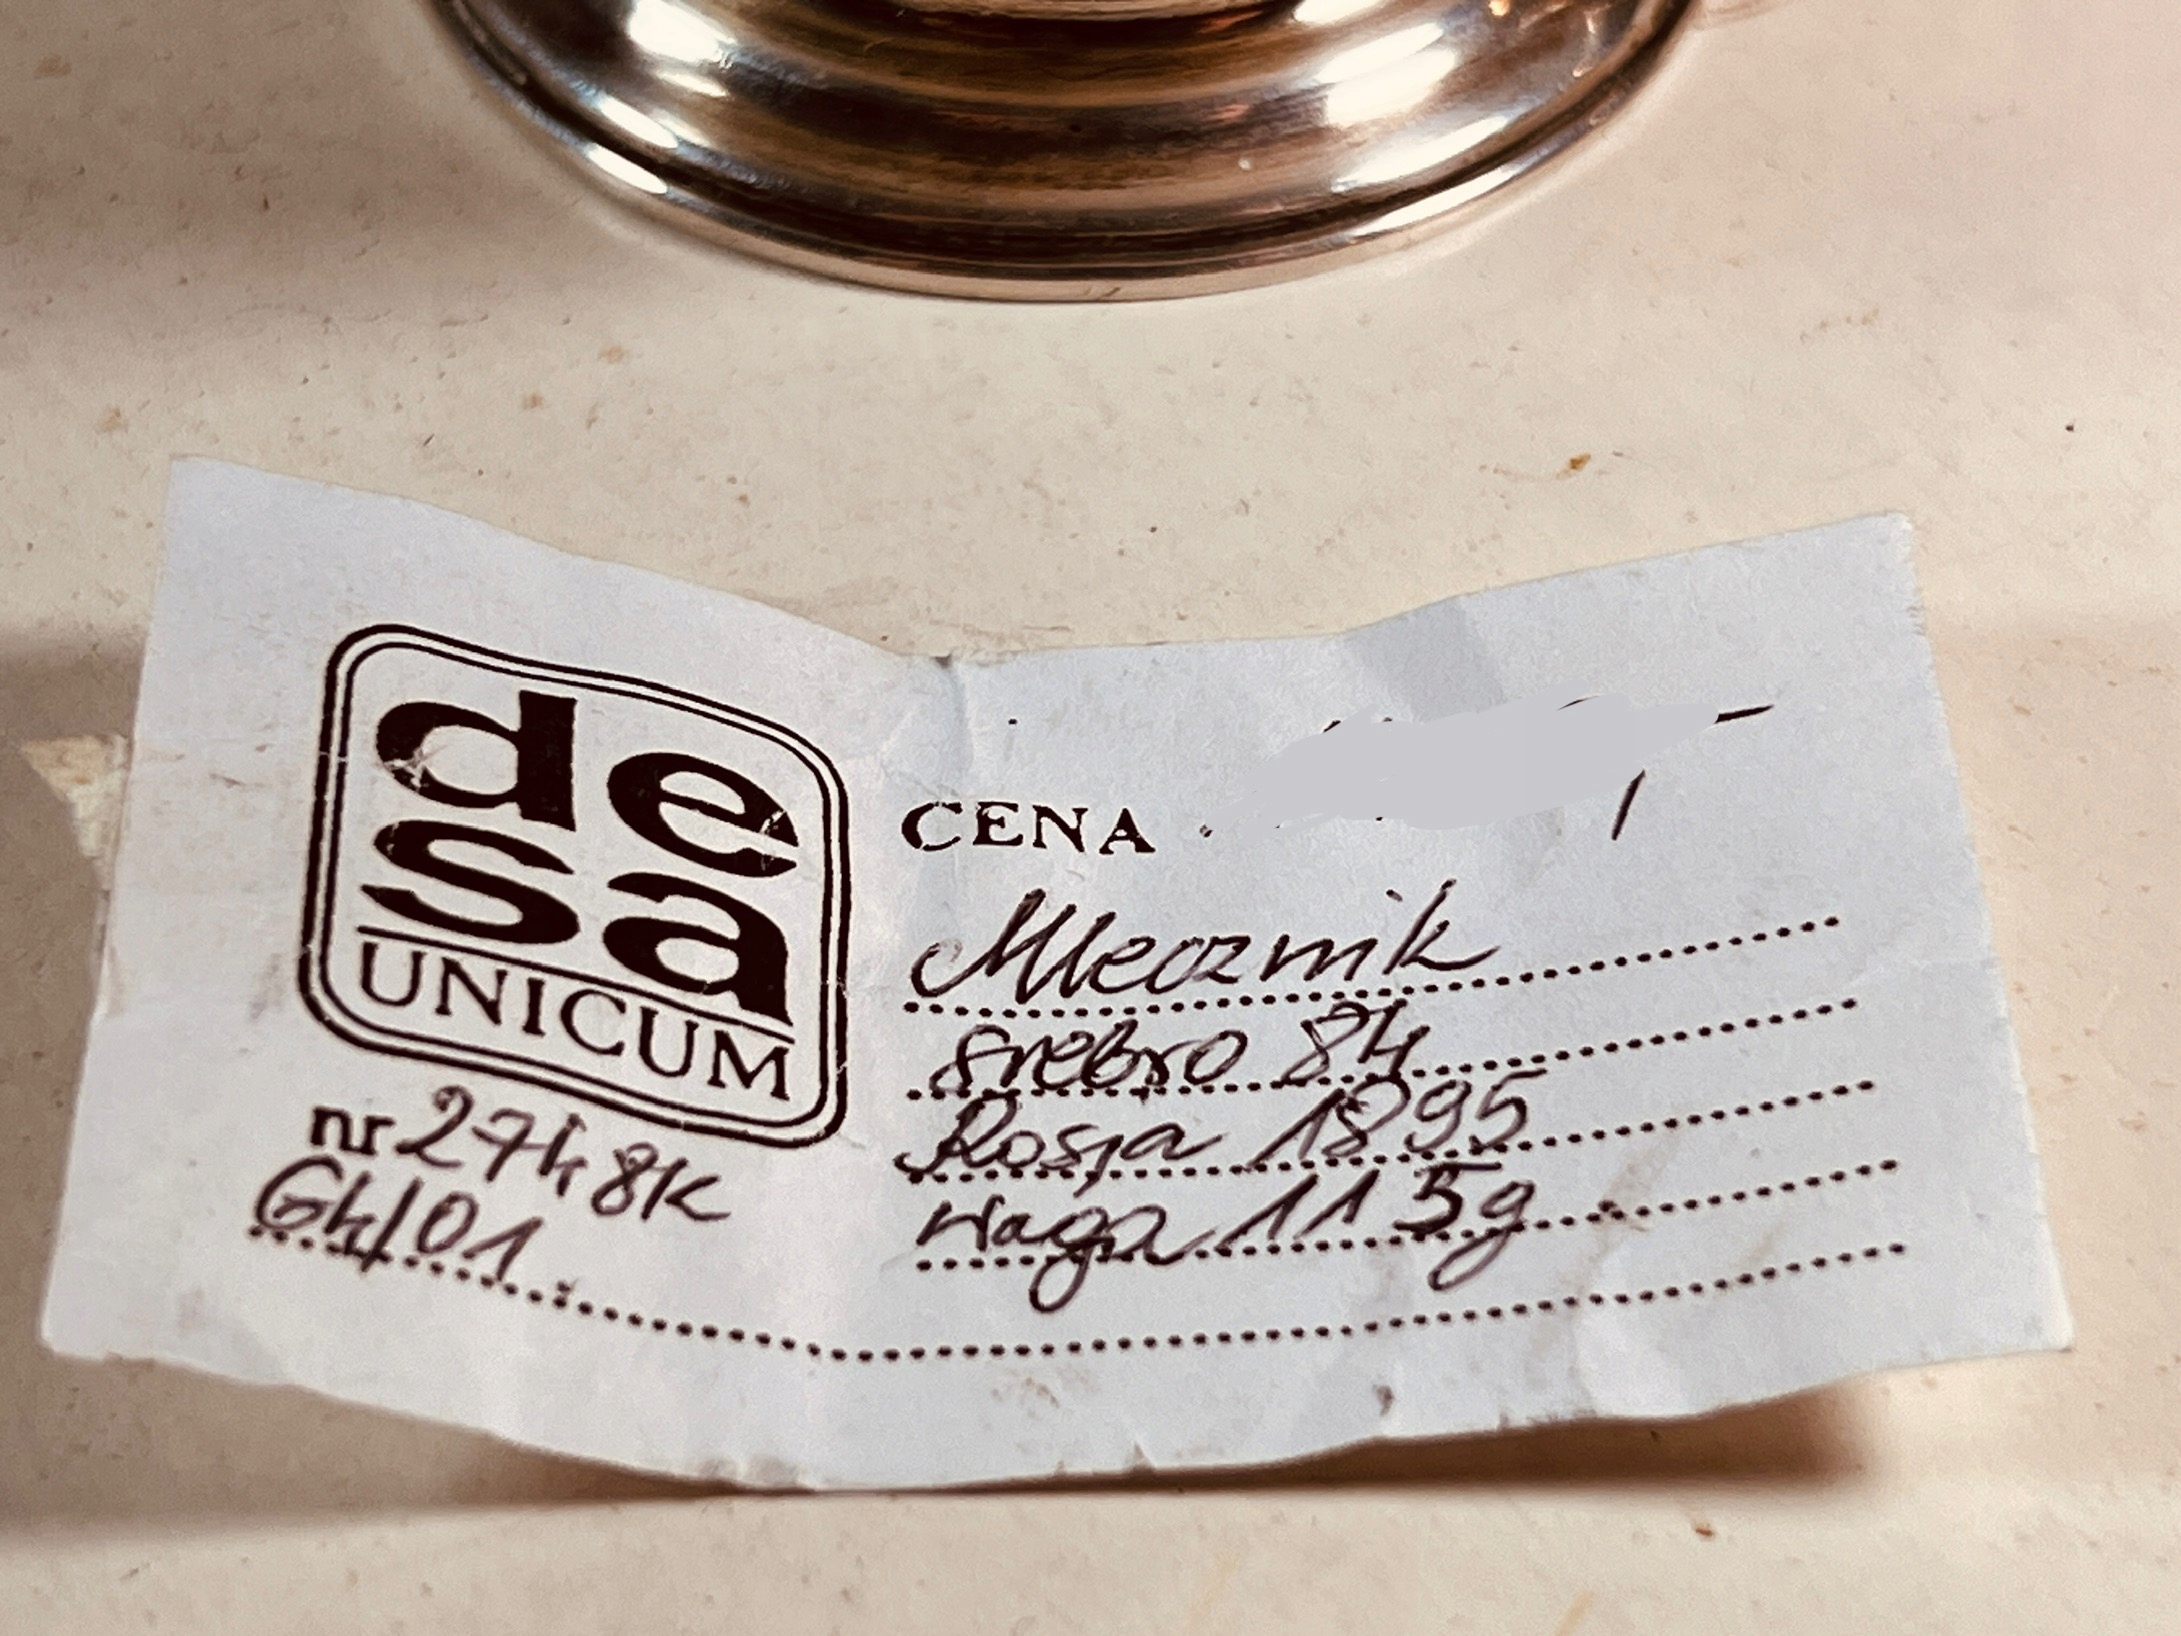 desa
UNICUM
nr 2748K
GK/01
CENA
Mlecznik
srebro 84
Rosja 1895
waga 115g